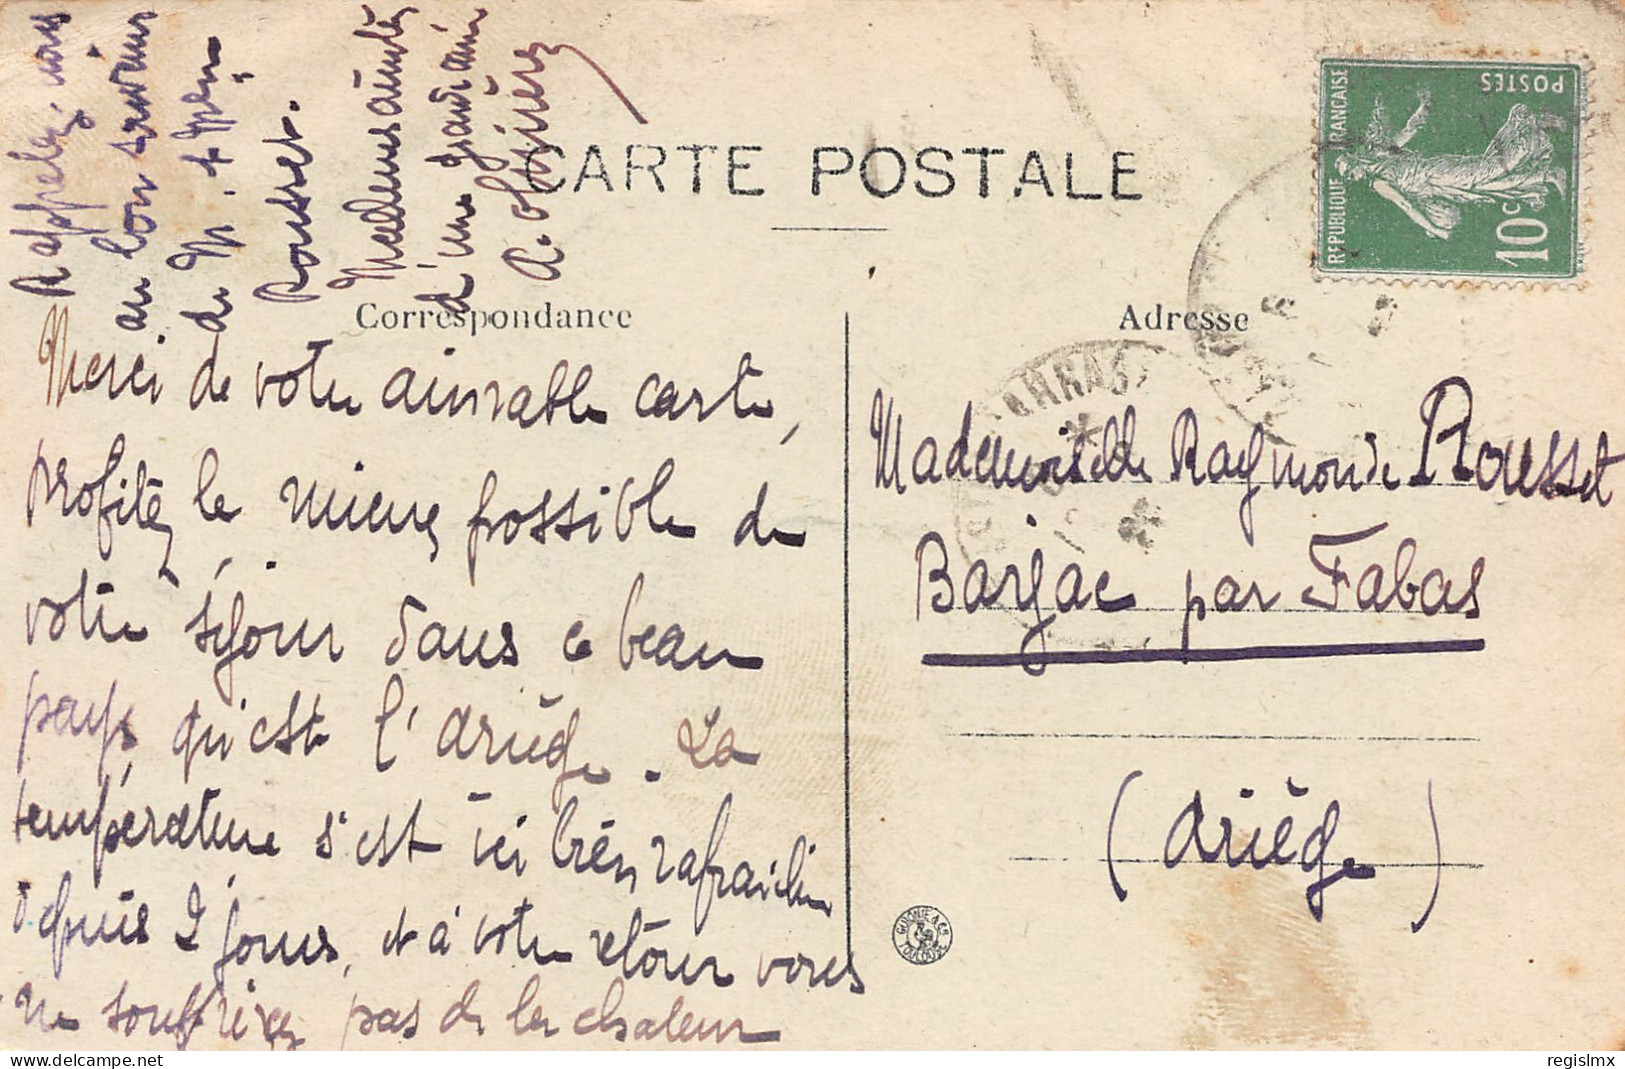 CARTE POSTALE
Correspondance
Merci de votre aimable carte,
profitez le mieux possible de
votre séjour dans ce beau
pays qu'est l'Ariège. La
température s'est ici bien rafraichie
depuis 2 jours, et à votre retour vous
ne souffrirez pas de la chaleur
Rappelez-nous
au bon souvenir
de M. & Mme
Rousset.
d'une grande amie
Adresse
Mademoiselle Raymonde Rousset
Barjac par Fabas
(Ariège)
REPUBLIQUE FRANÇAISE
POSTES
10c
TOULOUSE
regislmx
delcampe.net